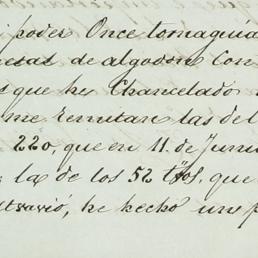 poder Once tomaguia
de algodon Con
que he Chancelado
me remitan las del
220, que en 11. de Juni
la de los 52 tt̃os, que
he hecho un p